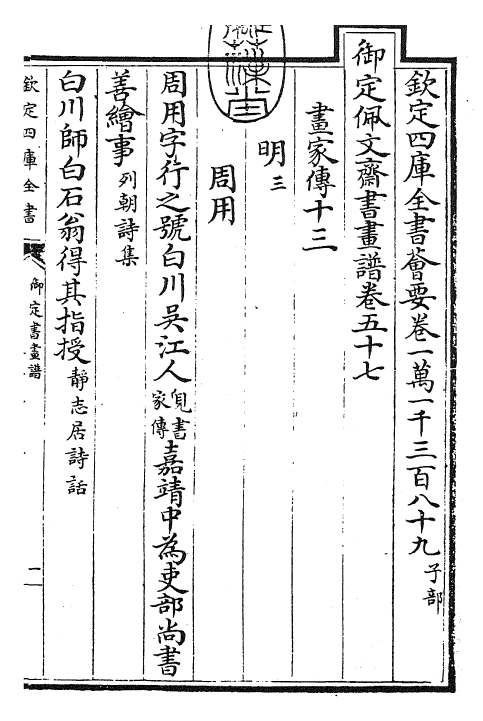 欽定四庫全書薈要卷一萬一千三百八十九 子部
御定佩文齋書畫譜卷五十七
畫家傳十三
明三
周用
周用字行之號白川吳江人 見書家傳 嘉靖中為吏部尚書
善繪事 列朝詩集
白川師白石翁得其指授 靜志居詩話
欽定四庫全書 御定書畫譜 一